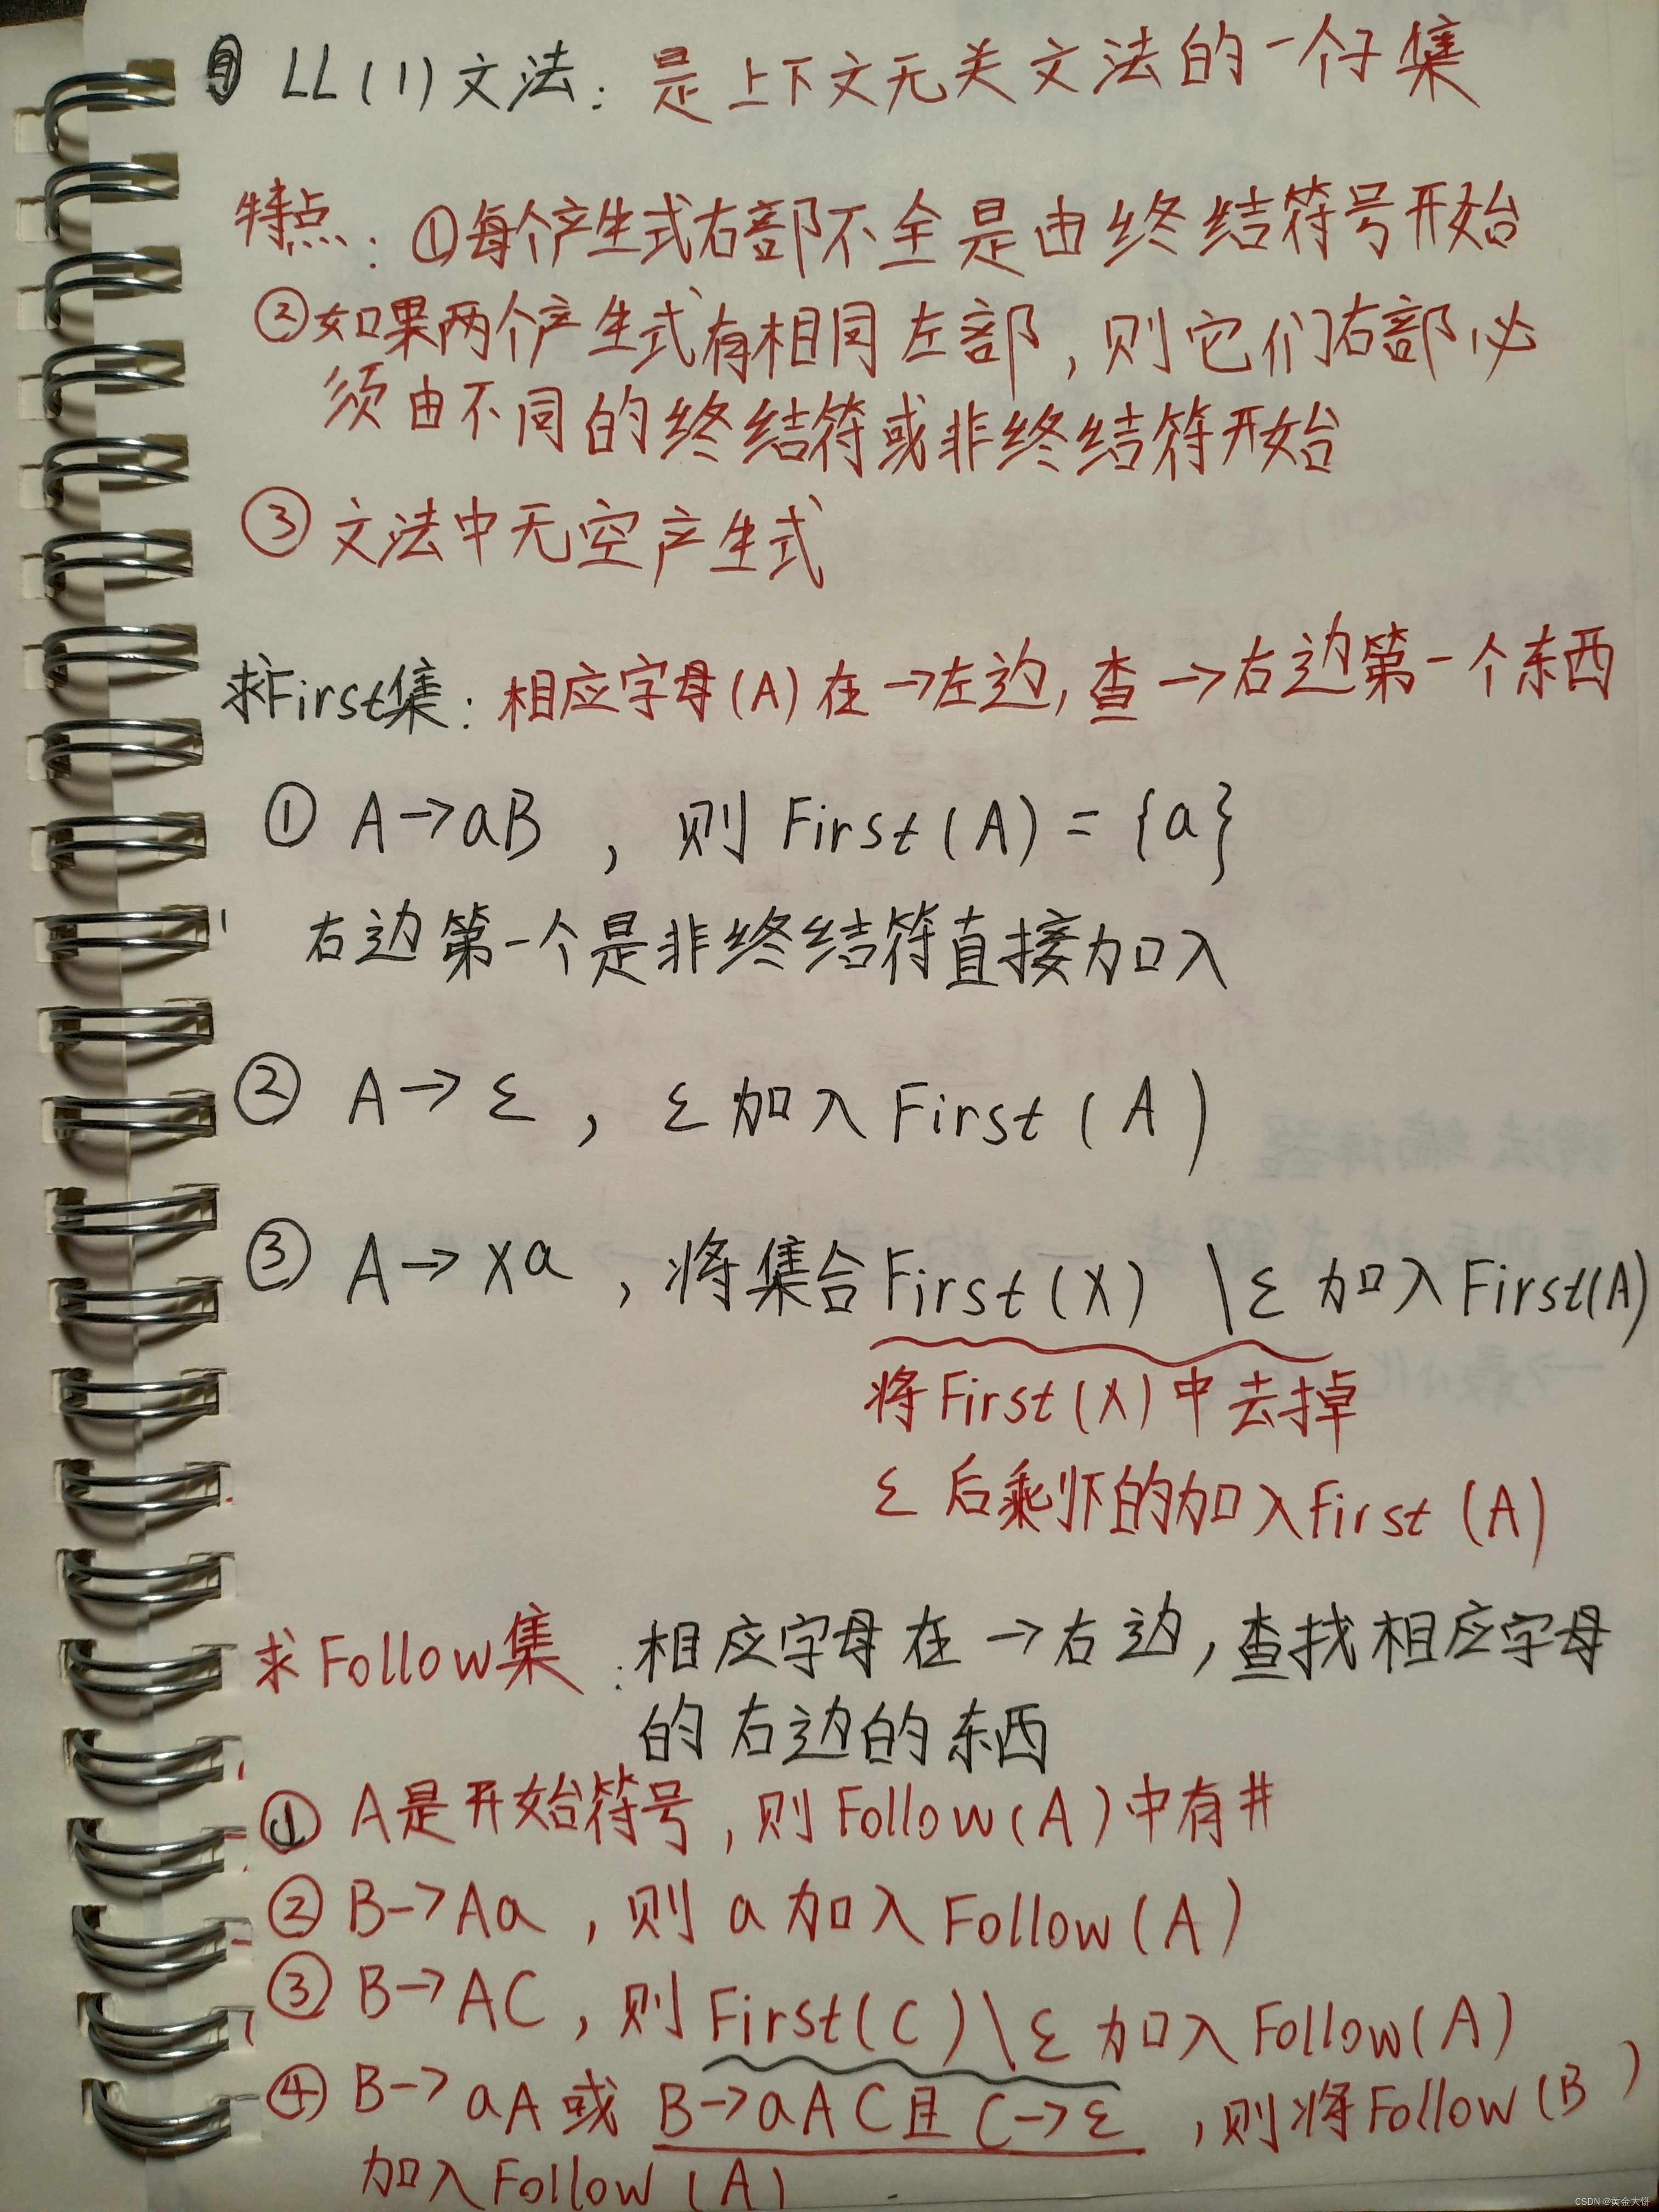 LL(1)文法:是上下文无关文法的一个子集
特点:①每个产生式右部不全是由终结符号开始
②如果两个产生式有相同左部,则它们右部必
须由不同的终结符或非终结符开始
③文法中无空产生式
求First集:相应字母(A)在→左边,查→右边第一个东西
① A→aB ,则 First(A)={a}
右边第一个是非终结符直接加入
② A→ε ,ε加入First(A)
③ A→Xa ,将集合First(X) \ε 加入First(A)
将First(X)中去掉
ε后剩下的加入First(A)
求Follow集:相应字母在→右边,查找相应字母
的右边的东西
① A是开始符号,则Follow(A)中有#
② B→Aa ,则 a加入Follow(A)
③ B→AC ,则First(C)\ε加入Follow(A)
④ B→aA或B→aAC且C→ε ,则将Follow(B)
加入Follow(A)
CSDN @黄金大饼